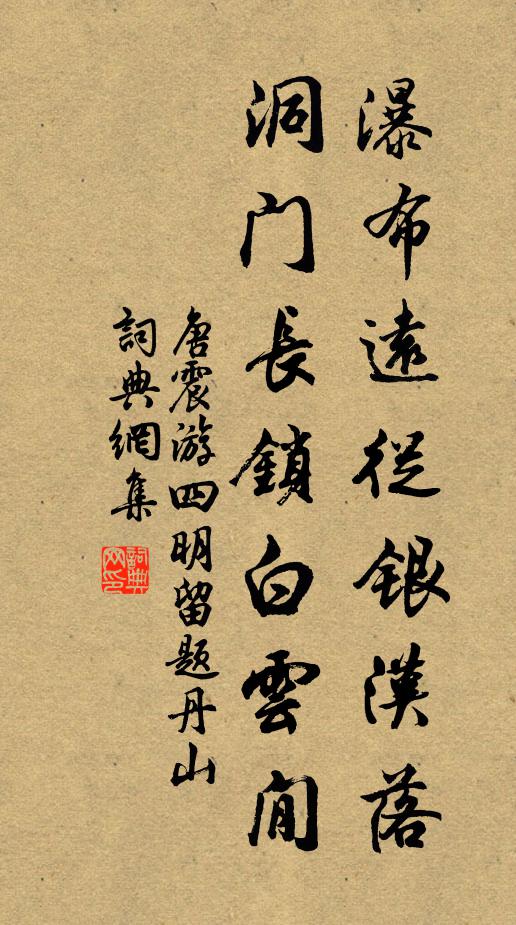 瀑布遠從銀漢落
洞門長鎖白雲間
唐震游四明留題丹山
詞典網集
詞典网印